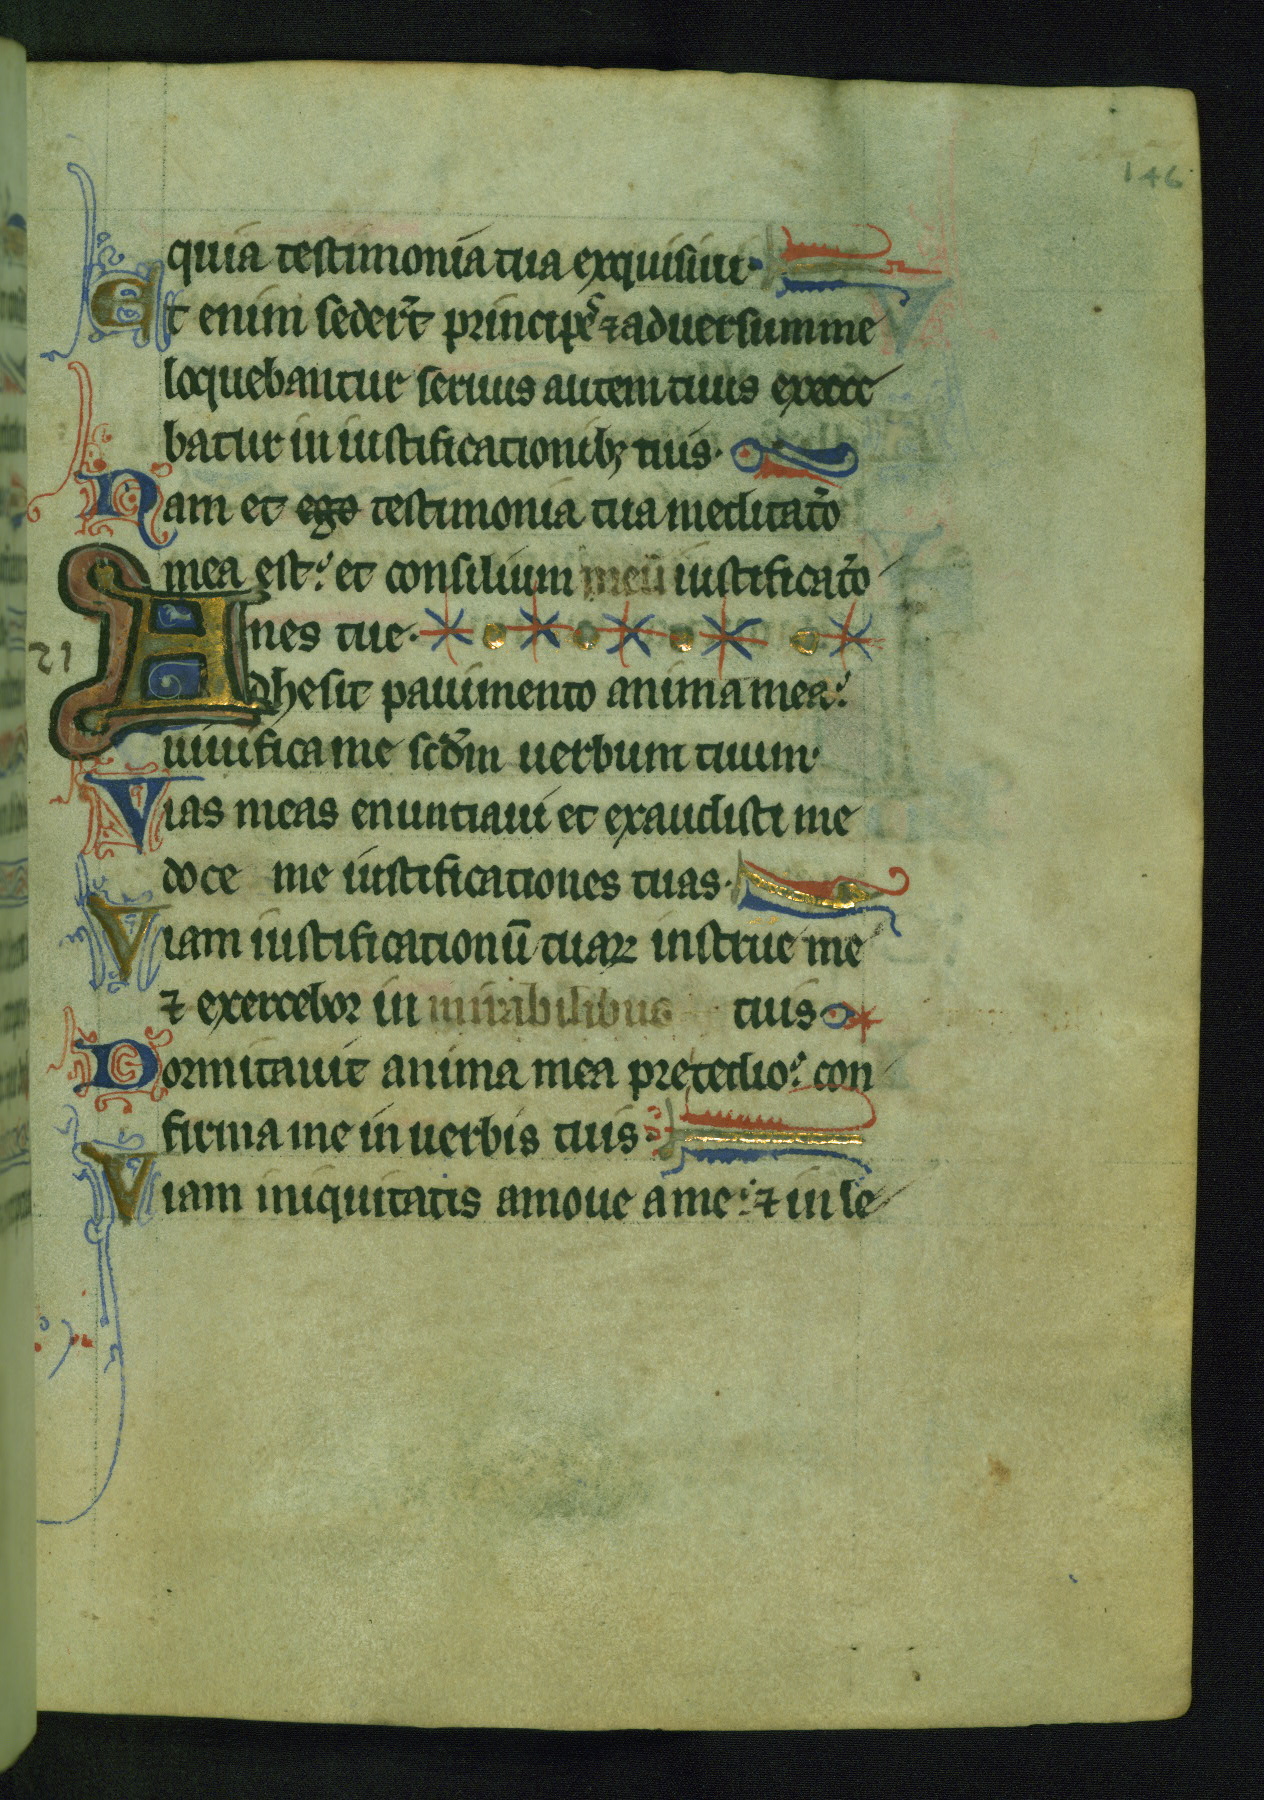 146
quia testimonia tua exquisiui·
Et enim seder̄t principẽs ⁊ aduersum me
loquebantur seruus autem tuus exerce
batur in iustificationibꝫ tuis·
Nam et ego testimonia tua meditat̄o
mea est: et consilium meū iustificat̄o
nes tue·
21
Adhesit pauimento anima mea:
uiuifica me scd̄m uerbum tuum·
Vias meas enuntiaui et exaudisti me
doce me iustificationes tuas·
Viam iustificationū tuaꝝ instrue me
⁊ exercebor in mirabilibus tuis
Dormitauit anima mea pre tedio: con
firma me in uerbis tuis·
Viam iniquitatis amoue a me: ⁊ in le